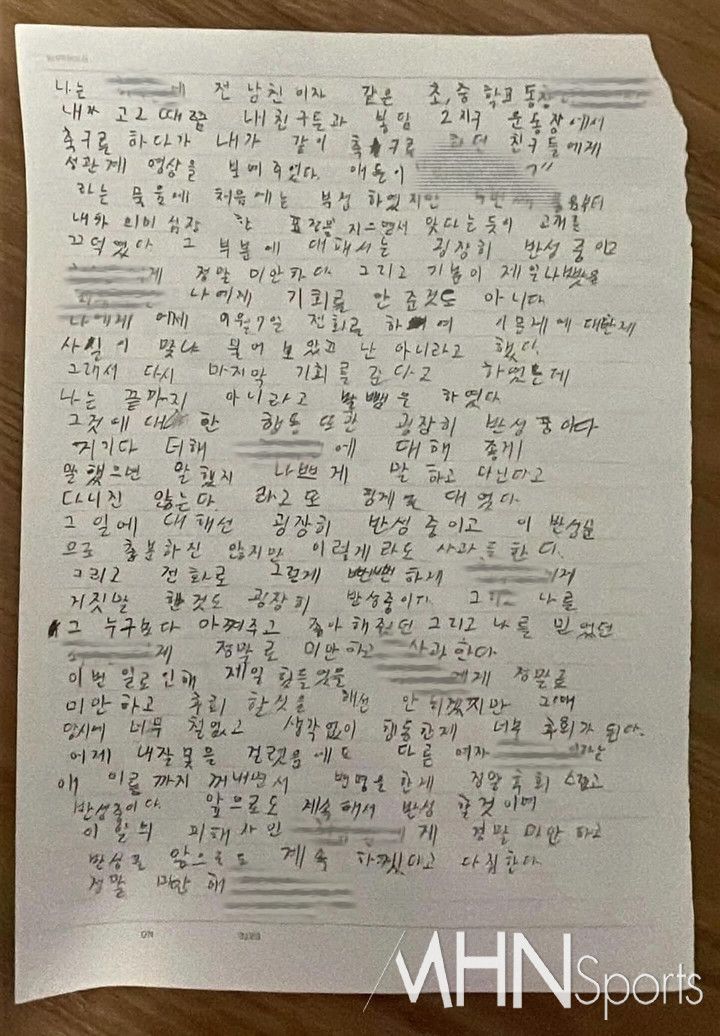 나는 에 전 남친이자 같은 초,중 학교 동창
내가 고2때쯤 내 친구들과 북일 2지구 운동장에서
축구를 하다가 내가 같이 축구를 하던 친구들에게
성관계 영상을 보여주었다. 애들이 "
라는 물음에 처음에는 부정 하였지만 부터
내가 의미심장 한 표정을 지으면서 맞다는 듯이 고개를
끄덕였다. 그 부분에 대해서는 굉장히 반성 중이고
게 정말 미안하다. 그리고 기분이 제일 나빴을
나에게 기회를 안 준것도 아니다
나에게 어제 9월7일 전화로 하여 이 문제에 대한게
사실이 맞냐 물어보았고 난 아니라고 했다.
그래서 다시 마지막 기회를 준다고 하였는데
나는 끝까지 아니라고 발뺌을 하였다
그것에 대한 행동 또한 굉장히 반성 중이다
거기다 더해 에 대해 좋게
말했으면 말했지 나쁘게 말 하고 다닌다고
다니진 않는다. 라고 또 핑계를 대였다.
그 일에 대해선 굉장히 반성 중이고 이 반성문
으로 충분하진 않지만 이렇게라도 사과를 한다.
그리고 전화로 그렇게 뻔뻔하게 에게
거짓말 한것도 굉장히 반성중이다 그리고 나를
그 누구보다 아껴주고 좋아해줬던 그리고 나를 믿었던
게 정말로 미안하고 사과한다
이번 일로 인해 제일 힘들었을 에게 정말로
미안하고 후회 할짓을 해선 안 되겠지만 그때
당시에 너무 철없고 생각없이 행동한게 너무 후회가 된다.
어제 내잘못을 걸렸음에도 다른 여자
애 이름까지 꺼내면서 변명을 한게 정말 후회스럽고
반성중이다. 앞으로도 계속해서 반성 할것이며
이 일의 피해자인 에게 정말 미안하고
반성도 앞으로도 계속 하겠다고 다짐한다
정말 미안해
MHN Sports